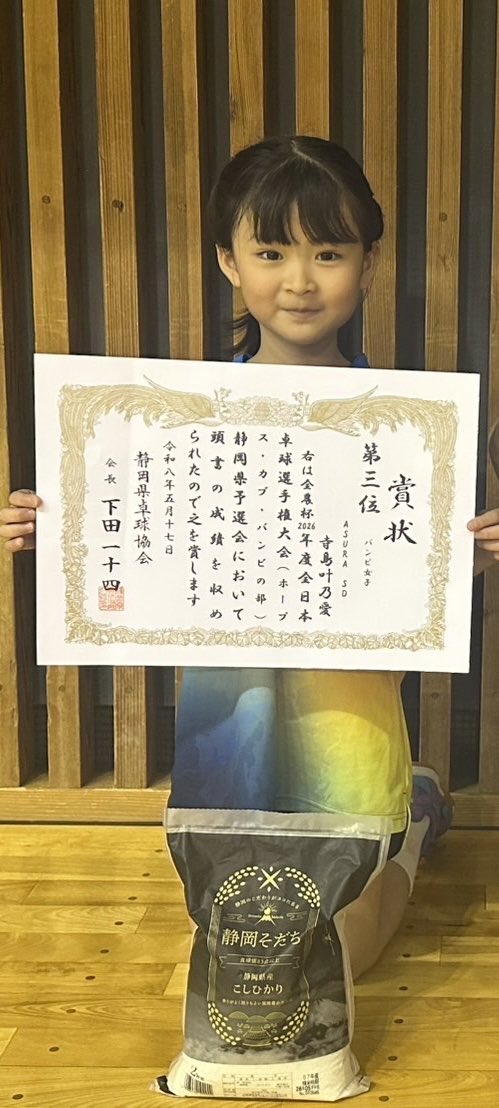 賞状
第三位
バンビ女子
ASURA SD
寺島叶乃愛
右は全農杯2026年度全日本
卓球選手権大会(ホープ
ス・カブ・バンビの部)
静岡県予選会において
頭書の成績を収め
られたので之を賞します
令和八年五月十七日
静岡県卓球協会
会長 下田一十四
静岡のこだわりがココにある
静岡そだち
静岡県産
こしひかり
07年産